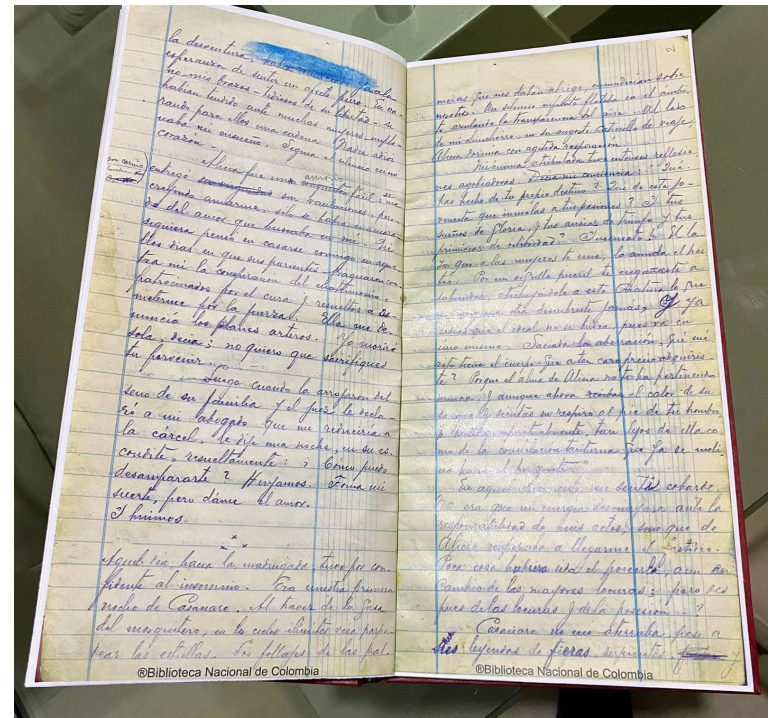 la desventura,
esperanza de sentir un afecto puro. En va-
no mis brazos - tediosos de su libertad - se
habían tendido ante muchas mujeres implo-
rando para ellos una cadena. Nadie adivi-
naba mi ensueño. Seguía el silencio en mi
corazón.-
Alicia fue un amorío fácil: se me
entregó sin vacilaciones, pero
creyendo amarme, sólo
da del amor que buscaba en mí. Ni
siquiera pensó en casarse conmigo en aque-
llos días en que sus parientes fraguaron con-
tra mí la conspiración del matrimonio,
patrocinados por el cura y resueltos a so-
meterme por la fuerza. Ella me de-
nunció los planes arteros. Yo moriré
sola, decía; no quiero que sacrifiques
tu porvenir.
Luego cuando la arrojaron del
seno de su familia y el juez le decla-
ró a mi abogado que me reduciría a
la cárcel, le dije una noche, en su es-
condite, resueltamente: ¿Cómo puedo
desampararte? Huyamos. Toma mi
suerte, pero dáme el amor.
I huimos.
x x x
Aquel día, hacia la madrugada, tuve por con-
fidente al insomnio. Era nuestra primera
noche de Casanare. Al través de la gasa
del mosquitero, en los cielos ilimites veía parpa-
dear las estrellas. Los follajes de las pal-
®Biblioteca Nacional de Colombia
meras que nos daban abrigo, enmudecían sobre
nosotros. Un silencio infinito flotaba en el ámbi-
to azulando la transparencia del aire. Al lado
de mi chinchorro, en su angosto catrecillo de viaje,
Alicia dormía con agitada respiración.
Mi ánima atribulada tuvo entonces reflexio-
nes agobiadoras. ¿Qué
has hecho de tu propio destino? ¿Qué de esta jo-
vencita que inmolas a tus pasiones? ¿I tus
sueños de gloria, y tus ansias de triunfo y tus
primicias de celebridad? ¡Insensato! El la-
zo que a las mujeres te une, lo anuda el has-
tío. Por un orgullo pueril te engañaste a
sabiendas, atribuyéndole a esta criatura lo que
en ninguna has descubierto jamás, y ya
sabías que el ideal no se busca, pues va en
uno mismo. Saciada la aberración, ¿qué mé-
rito tiene el cuerpo que a tan caro precio adquiris-
te? Porque el alma de Alicia no te ha pertenecido
nunca, y aunque ahora recibas el calor de su
sangre y sientas su respiro al pie de tu hombro,
te hallas, espiritualmente, tan lejos de ella co-
mo de la constelación taciturna que ya se incli-
na sobre el horizonte.
En aquel momento me sentía cobarde.
No era que mi energía desmayara ante la
responsabilidad de mis actos, sino que de
Alicia empezaba a llegarme el hastío.
Poca cosa hubiera sido el poseerla, aun en
cambio de las mayores locuras; pero des
pués de las locuras y de la posesión ... ?
Casanare no me aterraba pese a
sus leyendas de fieras, serpientes y
®Biblioteca Nacional de Colombia